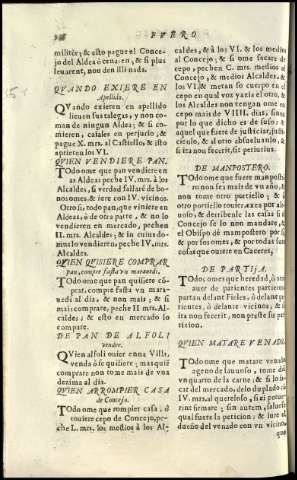 FVERO
militèr; & esto pague el Conce-
jo del Aldea ò cena en, & si plus
leuarent, non den illi nada.
QVANDO EXIERE EN
Apellido.
QVando exieren en apellido
lieuen sus talegas, y non co-
man de ningun Aldea; & si co-
mieren, catales en perjurio, &
pague X. mrs. al Castiello, & isto
aprieten los VI.
QUIEN VENDIERE PAN.
Todo ome que pan vendiere en
as Aldeas peche IV. mrs. à los
Alcaldes, si verdad fallaré de bo-
nos omes, & iure con IV. vicinos.
Otro si, todo pan, que viniere en
Aldeas, ò de otra parte, & no lo
vendieren en mercado, pechen
II. mrs. Alcaldes; & los cutis do-
mina lo vendieren, peche IV. mrs.
Alcaldes.
QUIEN QUISIERE COMPRAR
pan, compre fasta vn marauedi.
Todo ome que pan quisiere cõ-
prar, compre fasta vn mara-
uedi al dia, & non mais; & si
mais comprare, peche II. mrs. Al-
caldes; & esto en mercado lo
compare.
DE PAN DE ALFOLI
vender.
QVien alfoli ouier enna Villa,
venda ò se quisiere; mas qui
comprare non tome mais de vna
dezima al dia.
QUIEN ARROMPIER CASA
de Concejo.
Todo ome que rompier casa, ò
touiere cepo de Concejo, pe-
che L. mrs. los medios à los Al-
caldes, & à los VI. & los medios
al Concejo; & si ome sacare de
cepo, pechen C. mrs. medios al
Concejo, & medios Alcaldes, &
los VI. & metan so cuerpo en el
cepo en qual voz yazia el otro, &
los Alcaldes non tengan ome en
cepo mais de VIIII. dias, sino
por lo que dicho es de suso; &
aquel que fuere de justiciar, justi-
cienlo, ò den sobre fiadores, &
si ita non fecerit, sit periurius.
DE MANPOSTERO.
Todo ome que fuere manposte-
ro non sea mais de vn año, &
non tome otro portiello; & si
otro portiello touiere xaxara por a-
bondo, & derribenle las casas si
Concejo se lo non mandare, &
el Obispo de manpostero por si,
& por sos omes, & por todas sus
cosas que ouiere en Caceres.
DE PARTIJA.
Todo ome que heredad, ò
auer de parientes partieren
partan delant Fieles, ò delante pa-
rientes, ò delante vicinos, & si
ita non fecerit, non prestet su per-
ticion.
QUIEN MATARE VENADO
Todo ome que matare venado
ageno de lauoso, tome del
vn quarto de la carne, & si lo sa-
car del mercado, delo duplado
IV. mrs. al querelloso, si el po-
rint firmar; sin non, saluese
quando firmò, & jure sobre
dueño del venado con vn vicino